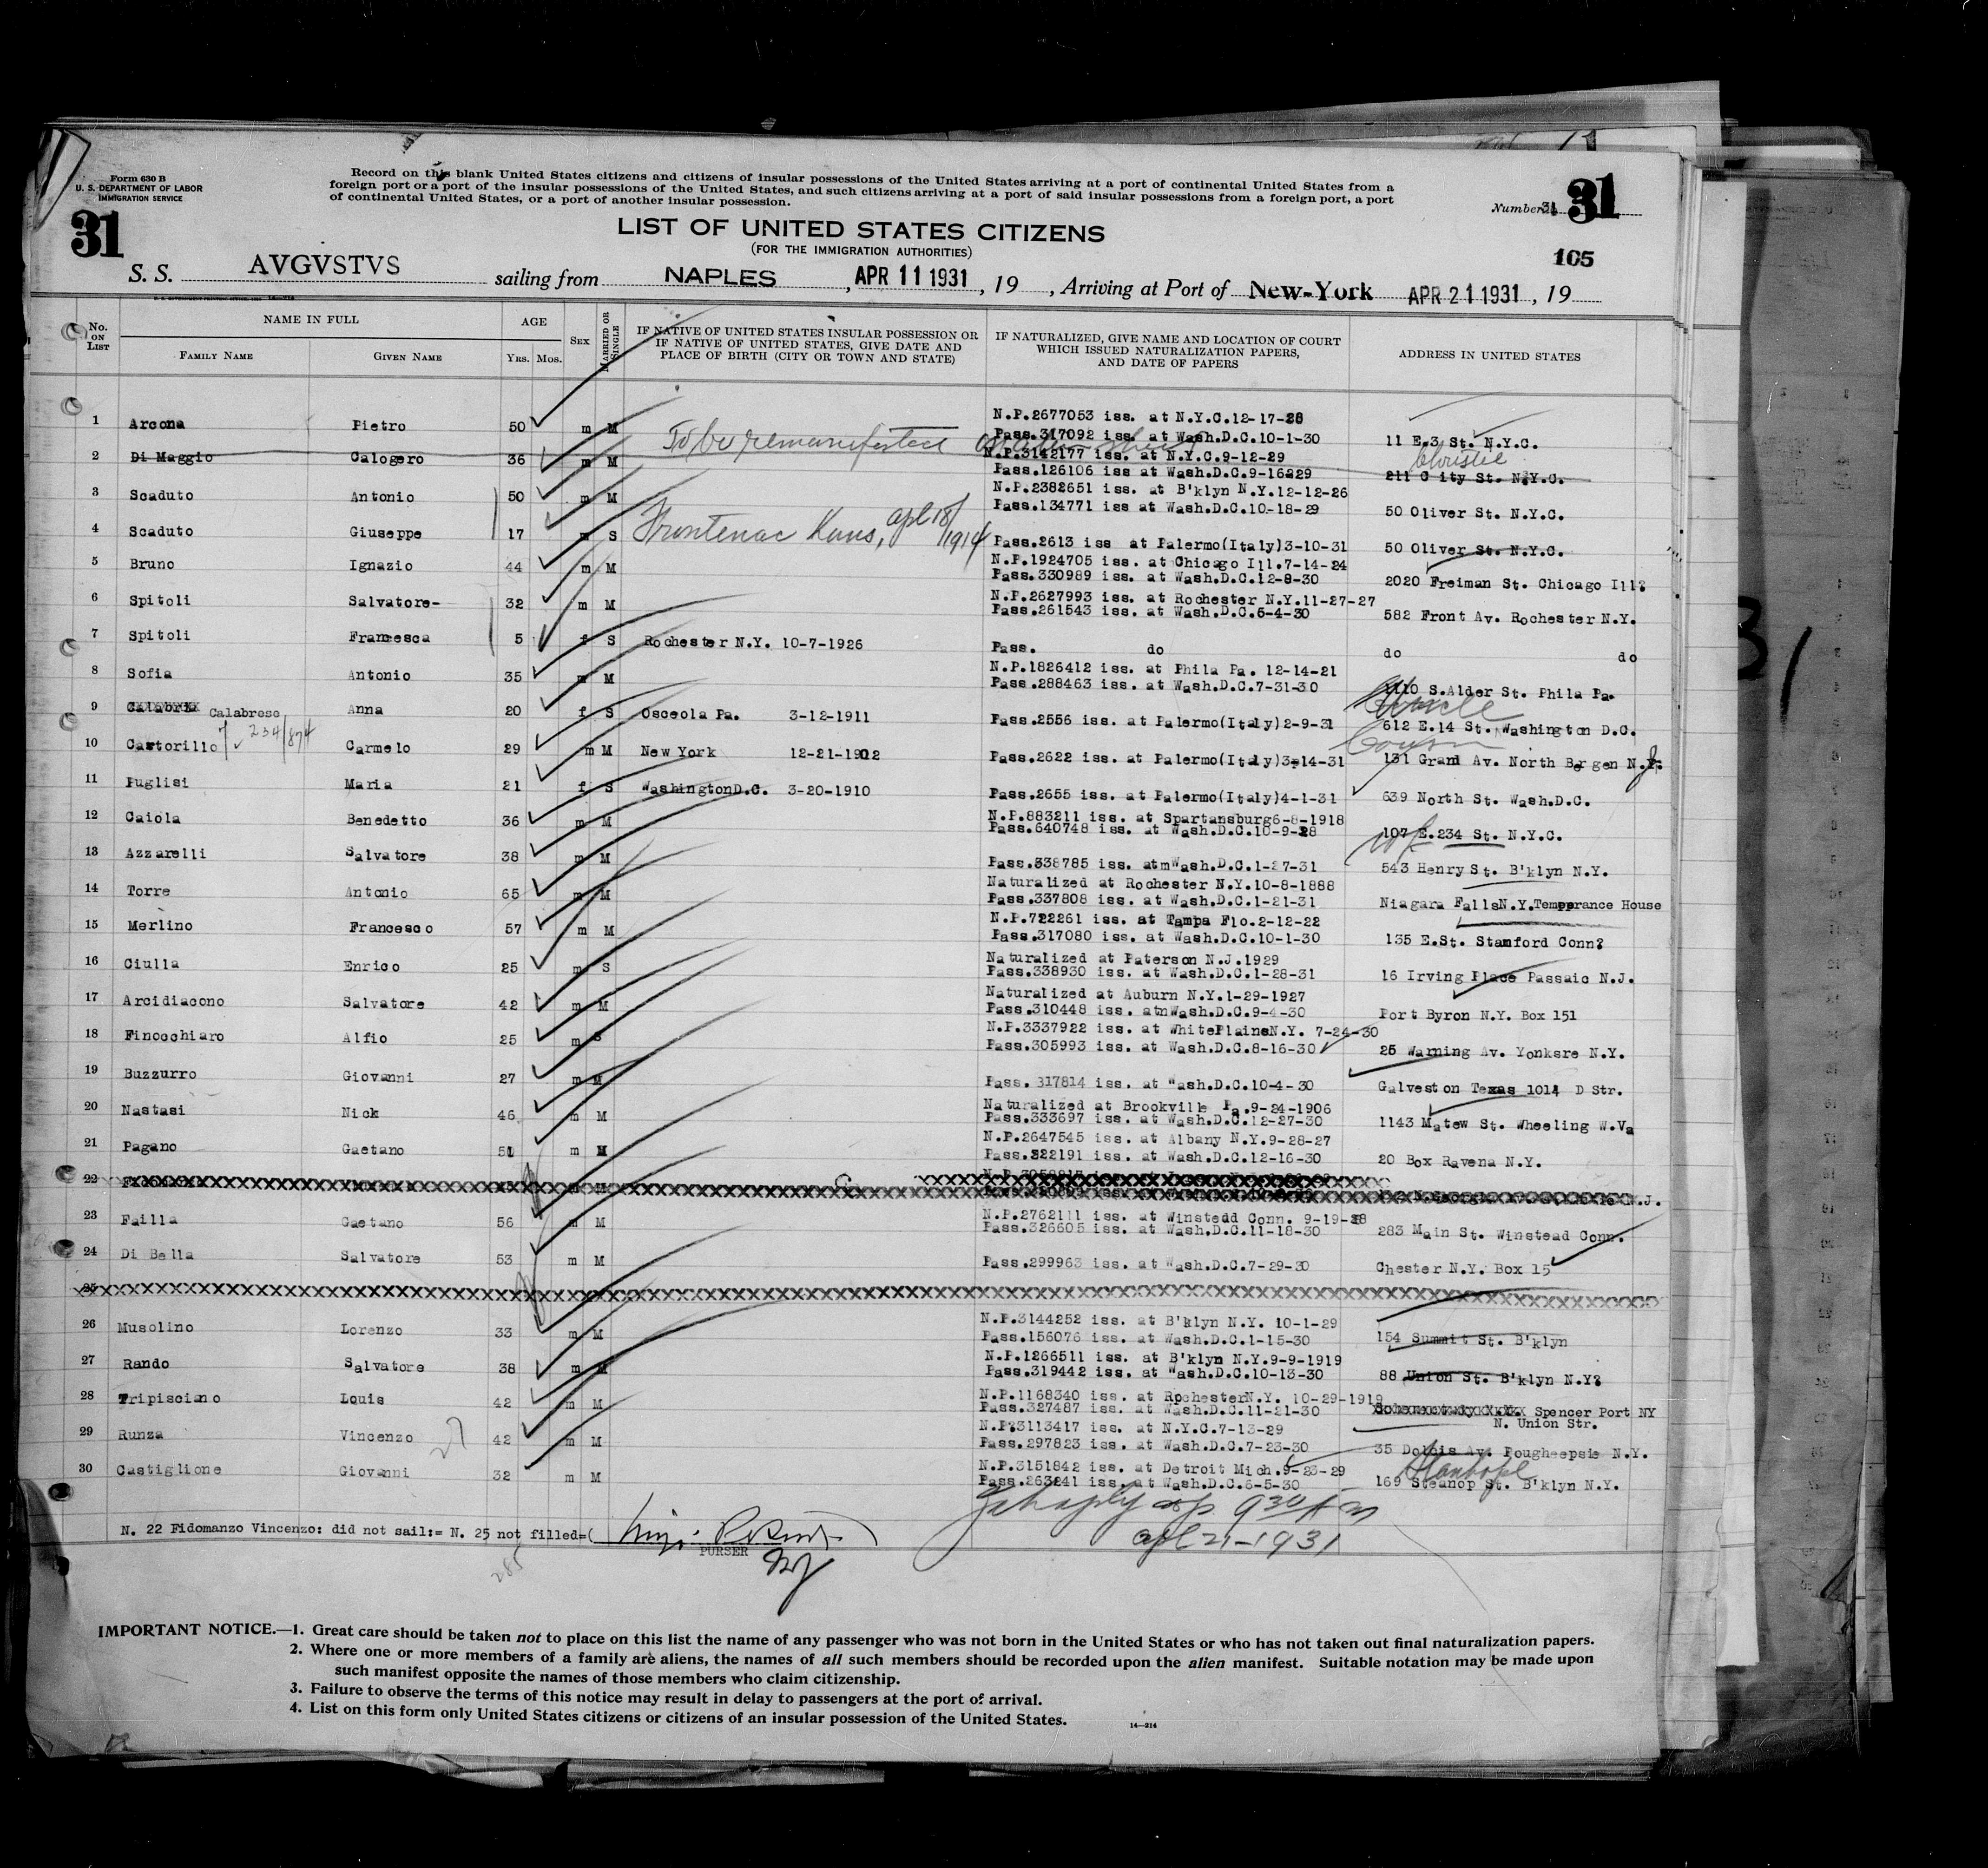 Form 630 B
U. S. DEPARTMENT OF LABOR
IMMIGRATION SERVICE
Record on this blank United States citizens and citizens of insular possessions of the United States arriving at a port of continental United States from a
foreign port or a port of the insular possessions of the United States, and such citizens arriving at a port of said insular possessions from a foreign port, a port
of continental United States, or a port of another insular possession.
31
Number 31 31
LIST OF UNITED STATES CITIZENS
(FOR THE IMMIGRATION AUTHORITIES)
105
S. S. AVGVSTVS sailing from NAPLES, APR 11 1931, 19 , Arriving at Port of New-York APR 21 1931, 19
No. ON LIST
NAME IN FULL
FAMILY NAME GIVEN NAME
AGE
YRS. MOS.
SEX
MARRIED OR SINGLE
IF NATIVE OF UNITED STATES INSULAR POSSESSION OR
IF NATIVE OF UNITED STATES, GIVE DATE AND
PLACE OF BIRTH (CITY OR TOWN AND STATE)
IF NATURALIZED, GIVE NAME AND LOCATION OF COURT
WHICH ISSUED NATURALIZATION PAPERS,
AND DATE OF PAPERS
ADDRESS IN UNITED STATES
N.P.2677053 iss. at N.Y.C.12-17-28
1 Arcona Pietro 50 m M Pass.317092 iss. at Wash.D.C.10-1-30 11 E.3 St. N.Y.C.
To be remanifested
N.P.3142177 iss. at N.Y.C.9-12-29 Christie
2 Di Maggio Calogero 36 m M Pass.126106 iss at Wash.D.C.9-16-29 211 C ity St. N.Y.C.
N.P.2382651 iss. at B'klyn N.Y.12-12-26
3 Scaduto Antonio 50 m M Pass.134771 iss at Wash.D.C.10-18-29 50 Oliver St. N.Y.C.
4 Scaduto Giuseppe 17 m S Frontenac Kans, apl 18/1914 Pass.2613 iss at Palermo(Italy)3-10-31 50 Oliver St. N.Y.C.
N.P.1924705 iss. at Chicago Ill.7-14-24
5 Bruno Ignazio 44 m M Pass.330989 iss. at Wash.D.C.12-8-30 2020 Freiman St. Chicago Ill?
N.P.2627993 iss. at Rochester N.Y.11-27-27
6 Spitoli Salvatore- 32 m M Pass.261543 iss. at Wash.D.C.5-4-30 582 Front Av. Rochester N.Y.
7 Spitoli Francesca 5 f S Rochester N.Y. 10-7-1926 Pass. do do do
N.P.1826412 iss. at Phila Pa. 12-14-21
8 Sofia Antonio 35 m M Pass.288463 iss. at Wash.D.C.7-31-30 1110 S.Alder St. Phila Pa.
9 Calabrese Anna 20 f S Osceola Pa. 3-12-1911 Pass.2556 iss. at Palermo(Italy)2-9-31 612 E.14 St. Washington D.C.
7 234/874
10 Castorillo Carmelo 29 m M New York 12-21-1902 Pass.2622 iss. at Palermo(Italy)3-14-31 131 Grand Av. North Bergen N.J.
11 Puglisi Maria 21 f S WashingtonD.C. 3-20-1910 Pass.2655 iss. at Palermo(Italy)4-1-31 639 North St. Wash.D.C.
N.P.883211 iss. at Spartansburg6-8-1918
12 Caiola Benedetto 36 m M Pass.640748 iss. at Wash.D.C.10-9-28 107 E.234 St. N.Y.C.
13 Azzarelli Salvatore 38 m M Pass.338785 iss. atmWash.D.C.1-27-31 543 Henry St. B'klyn N.Y.
Naturalized at Rochester N.Y.10-8-1888
14 Torre Antonio 65 m M Pass.337808 iss. at Wash.D.C.1-21-31 Niagara FallsN.Y.Temperance House
N.P.722261 iss. at Tampa Flo.2-12-22
15 Merlino Francesco 57 m M Pass.317080 iss. at Wash.D.C.10-1-30 135 E.St. Stamford Conn?
Naturalized at Paterson N.J.1929
16 Ciulla Enrico 25 m S Pass.338930 iss. at Wash.D.C.1-28-31 16 Irving Place Passaic N.J.
Naturalized at Auburn N.Y.1-29-1927
17 Arcidiacono Salvatore 42 m M Pass.310448 iss. atnWash.D.C.9-4-30 Port Byron N.Y. Box 151
N.P.3337922 iss. at WhitePlaineN.Y. 7-24-30
18 Finocchiaro Alfio 25 m S Pass.305993 iss. at Wash.D.C.8-16-30 25 Warning Av. Yonksre N.Y.
19 Buzzurro Giovanni 27 m M Pass. 317814 iss. at Wash.D.C.10-4-30 Galveston Texas 1014 D Str.
Naturalized at Brookville Pa.9-24-1906
20 Nastasi Nick 46 m M Pass.333697 iss. at Wash.D.C.12-27-30 1143 Matew St. Wheeling W.Va
N.P.2647545 iss. at Albany N.Y.9-28-27
21 Pagano Gaetano 51 m M Pass.322191 iss. at Wash.D.C.12-16-30 20 Box Ravena N.Y.
22
N.P.2762111 iss. at Winstead Conn. 9-19-28
23 Failla Gaetano 56 m M Pass.326605 iss. at Wash.D.C.11-18-30 283 Main St. Winstead Conn.
24 Di Bella Salvatore 53 m M Pass.299963 iss. at Wash.D.C.7-29-30 Chester N.Y. Box 15
25
N.P.3144252 iss. at B'klyn N.Y. 10-1-29
26 Musolino Lorenzo 33 m M Pass.156076 iss. at Wash.D.C.1-15-30 154 Summit St. B'klyn
N.P.1266511 iss. at B'klyn N.Y.9-9-1919
27 Rando Salvatore 38 m M Pass.319442 iss. at Wash.D.C.10-13-30 88 Union St. B'klyn N.Y?
N.P.1168340 iss. at RochesterN.Y. 10-29-1919
28 Tripisciano Louis 42 m M Pass.327487 iss. at Wash.D.C.11-21-30 Spencer Port NY
N. Union Str.
N.P?3113417 iss. at N.Y.C.7-13-29
29 Runza Vincenzo 27 42 m M Pass.297823 iss. at Wash.D.C.7-23-30 35 Dolois Av. Pougheepsie N.Y.
N.P.3151842 iss. at Detroit Mich.9-23-29 Stanhope
30 Castiglione Giovanni 32 m M Pass.263241 iss. at Wash.D.C.5-5-30 169 Steanop St. B'klyn N.Y.
9 30 A m
apl 21-1931
N. 22 Fidomanzo Vincenzo: did not sail:= N. 25 not filled=(
PURSER
285
IMPORTANT NOTICE.—1. Great care should be taken not to place on this list the name of any passenger who was not born in the United States or who has not taken out final naturalization papers.
2. Where one or more members of a family are aliens, the names of all such members should be recorded upon the alien manifest. Suitable notation may be made upon
such manifest opposite the names of those members who claim citizenship.
3. Failure to observe the terms of this notice may result in delay to passengers at the port of arrival.
4. List on this form only United States citizens or citizens of an insular possession of the United States.
14—214
31